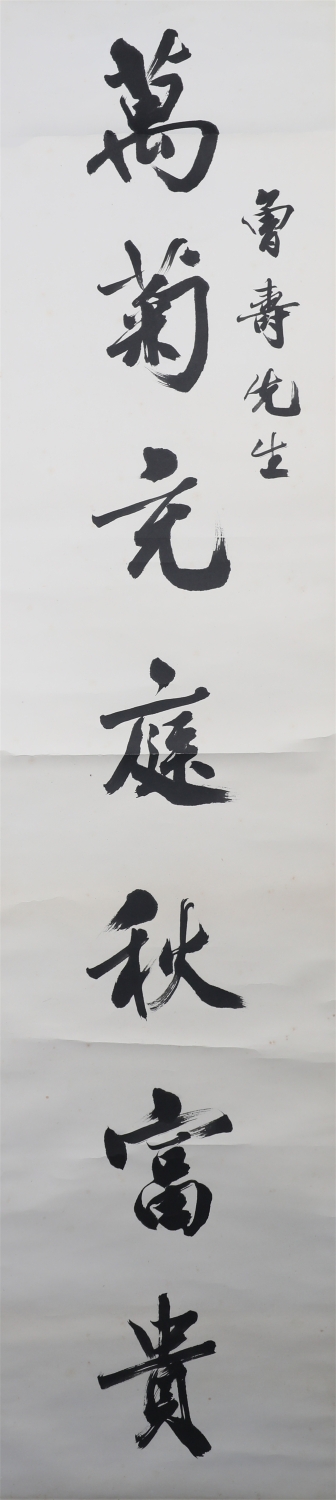 魯壽先生
萬菊充庭秋富貴